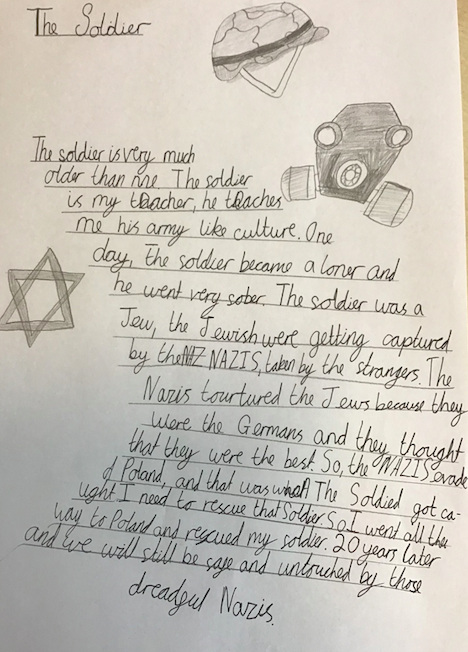 The Soldier
The soldier is very much
older than me. The soldier
is my teacher, he teaches
me his army like culture. One
day, the soldier became a loner and
he went very sober. The soldier was a
Jew, the Jewish were getting captured
by the NAZIS, taken by the strangers. The
Nazis tourtured the Jews because they
were the Germans and they thought
that they were the best. So, the NAZIS evade
d Poland, and that was when The Soldied got ca-
ught. I need to rescue that Soldier. So I went all the
way to Poland and rescued my soldier. 20 years later
and we will still be safe and untouched by those
dreadful Nazis.